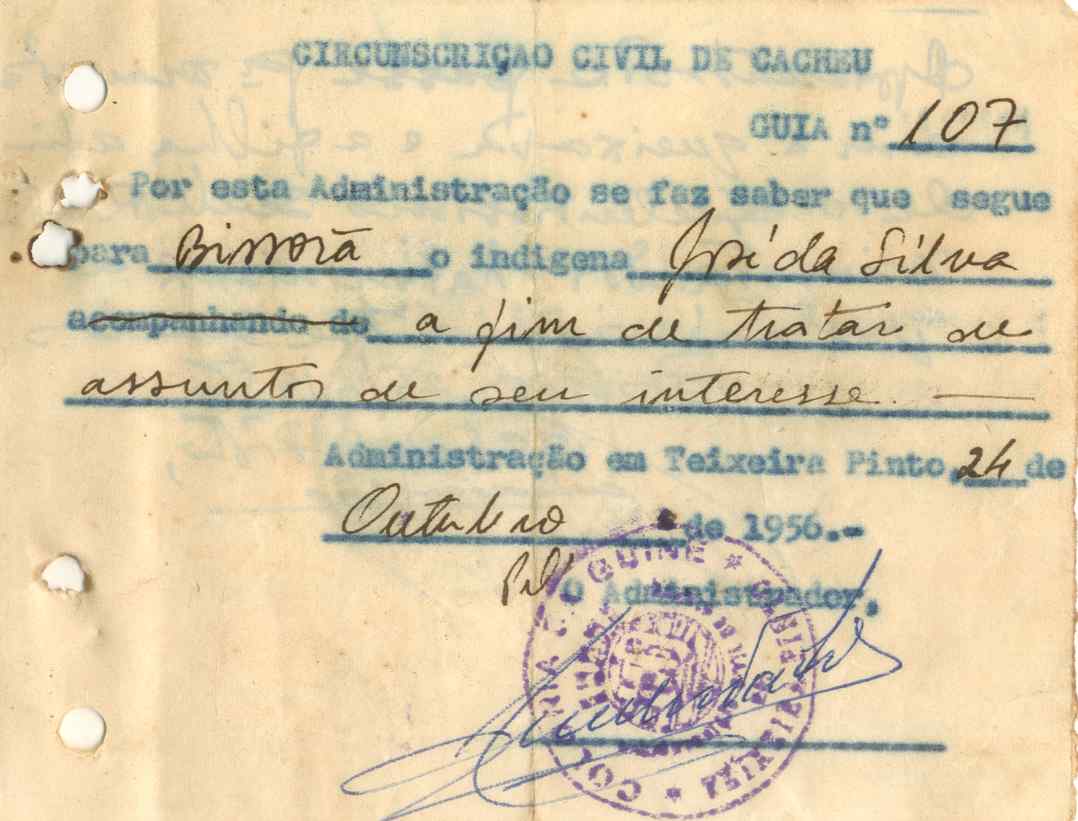 CIRCUNSCRIÇAO CIVIL DE CACHEU
GUIA nº 107
Por esta Administração se faz saber que segue
para Bissorã o indigena José da Silva
acompanhando de a fim de tratar de
assuntos de seu interesse. —
Administração em Teixeira Pinto, 24 de
Outubro de 1956.-
O Administrador,
GUINÉ